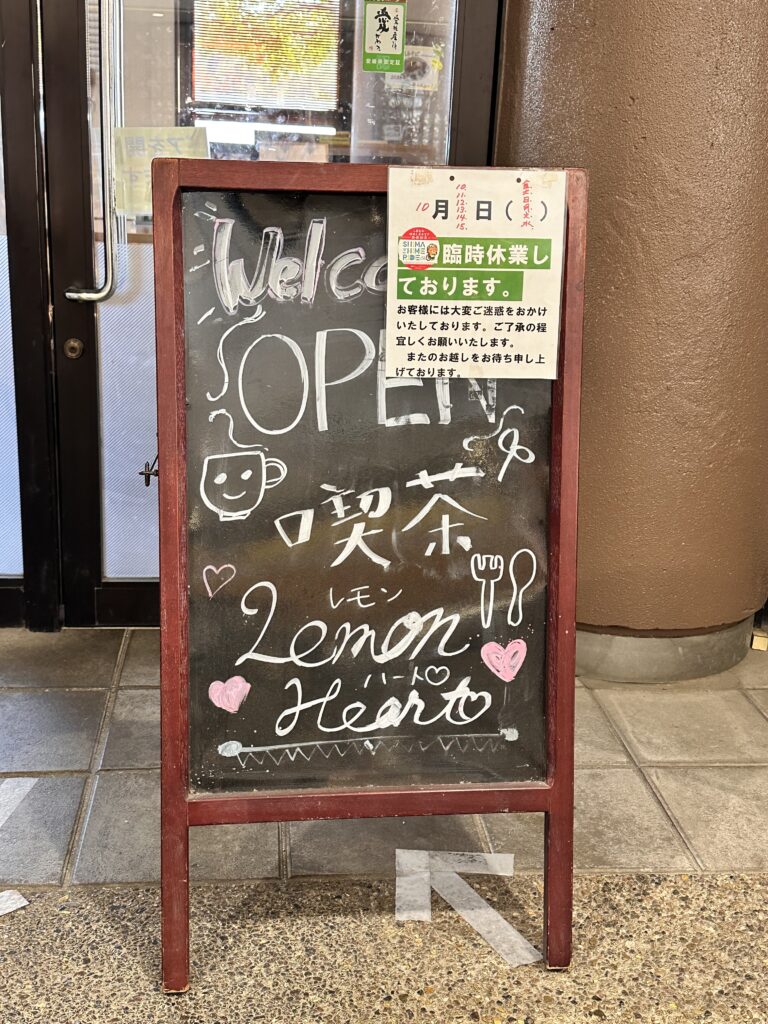 Welco
OPEN
喫茶
レモン
Lemon
ハート
Heart
10月10.11.12.13.14.15.日(金土日月火水)
臨時休業し
ております。
お客様には大変ご迷惑をおかけ
いたしております。ご了承の程
宜しくお願いいたします。
またのお越しをお待ち申し上
げております。